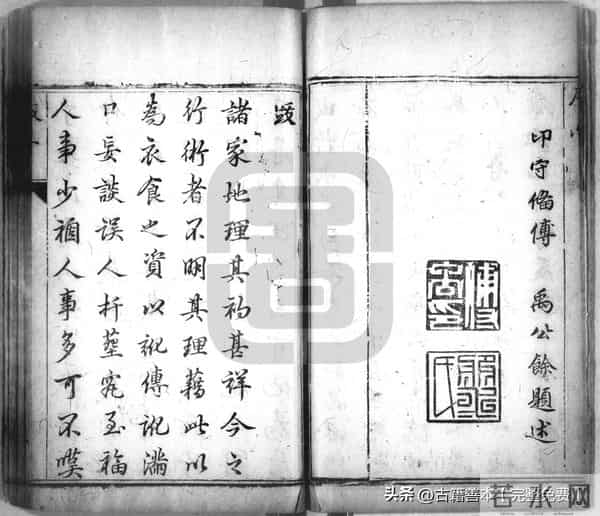 印守偹傳
禹公餘題述
跋
諸家地理其甚祥今之
行術者不明其理藉此以
為衣食之資以訛傳訛滿
口妄談误人扦塟究至福
人事少禍人事多可不嘆
头条 @古籍善本/完整免费